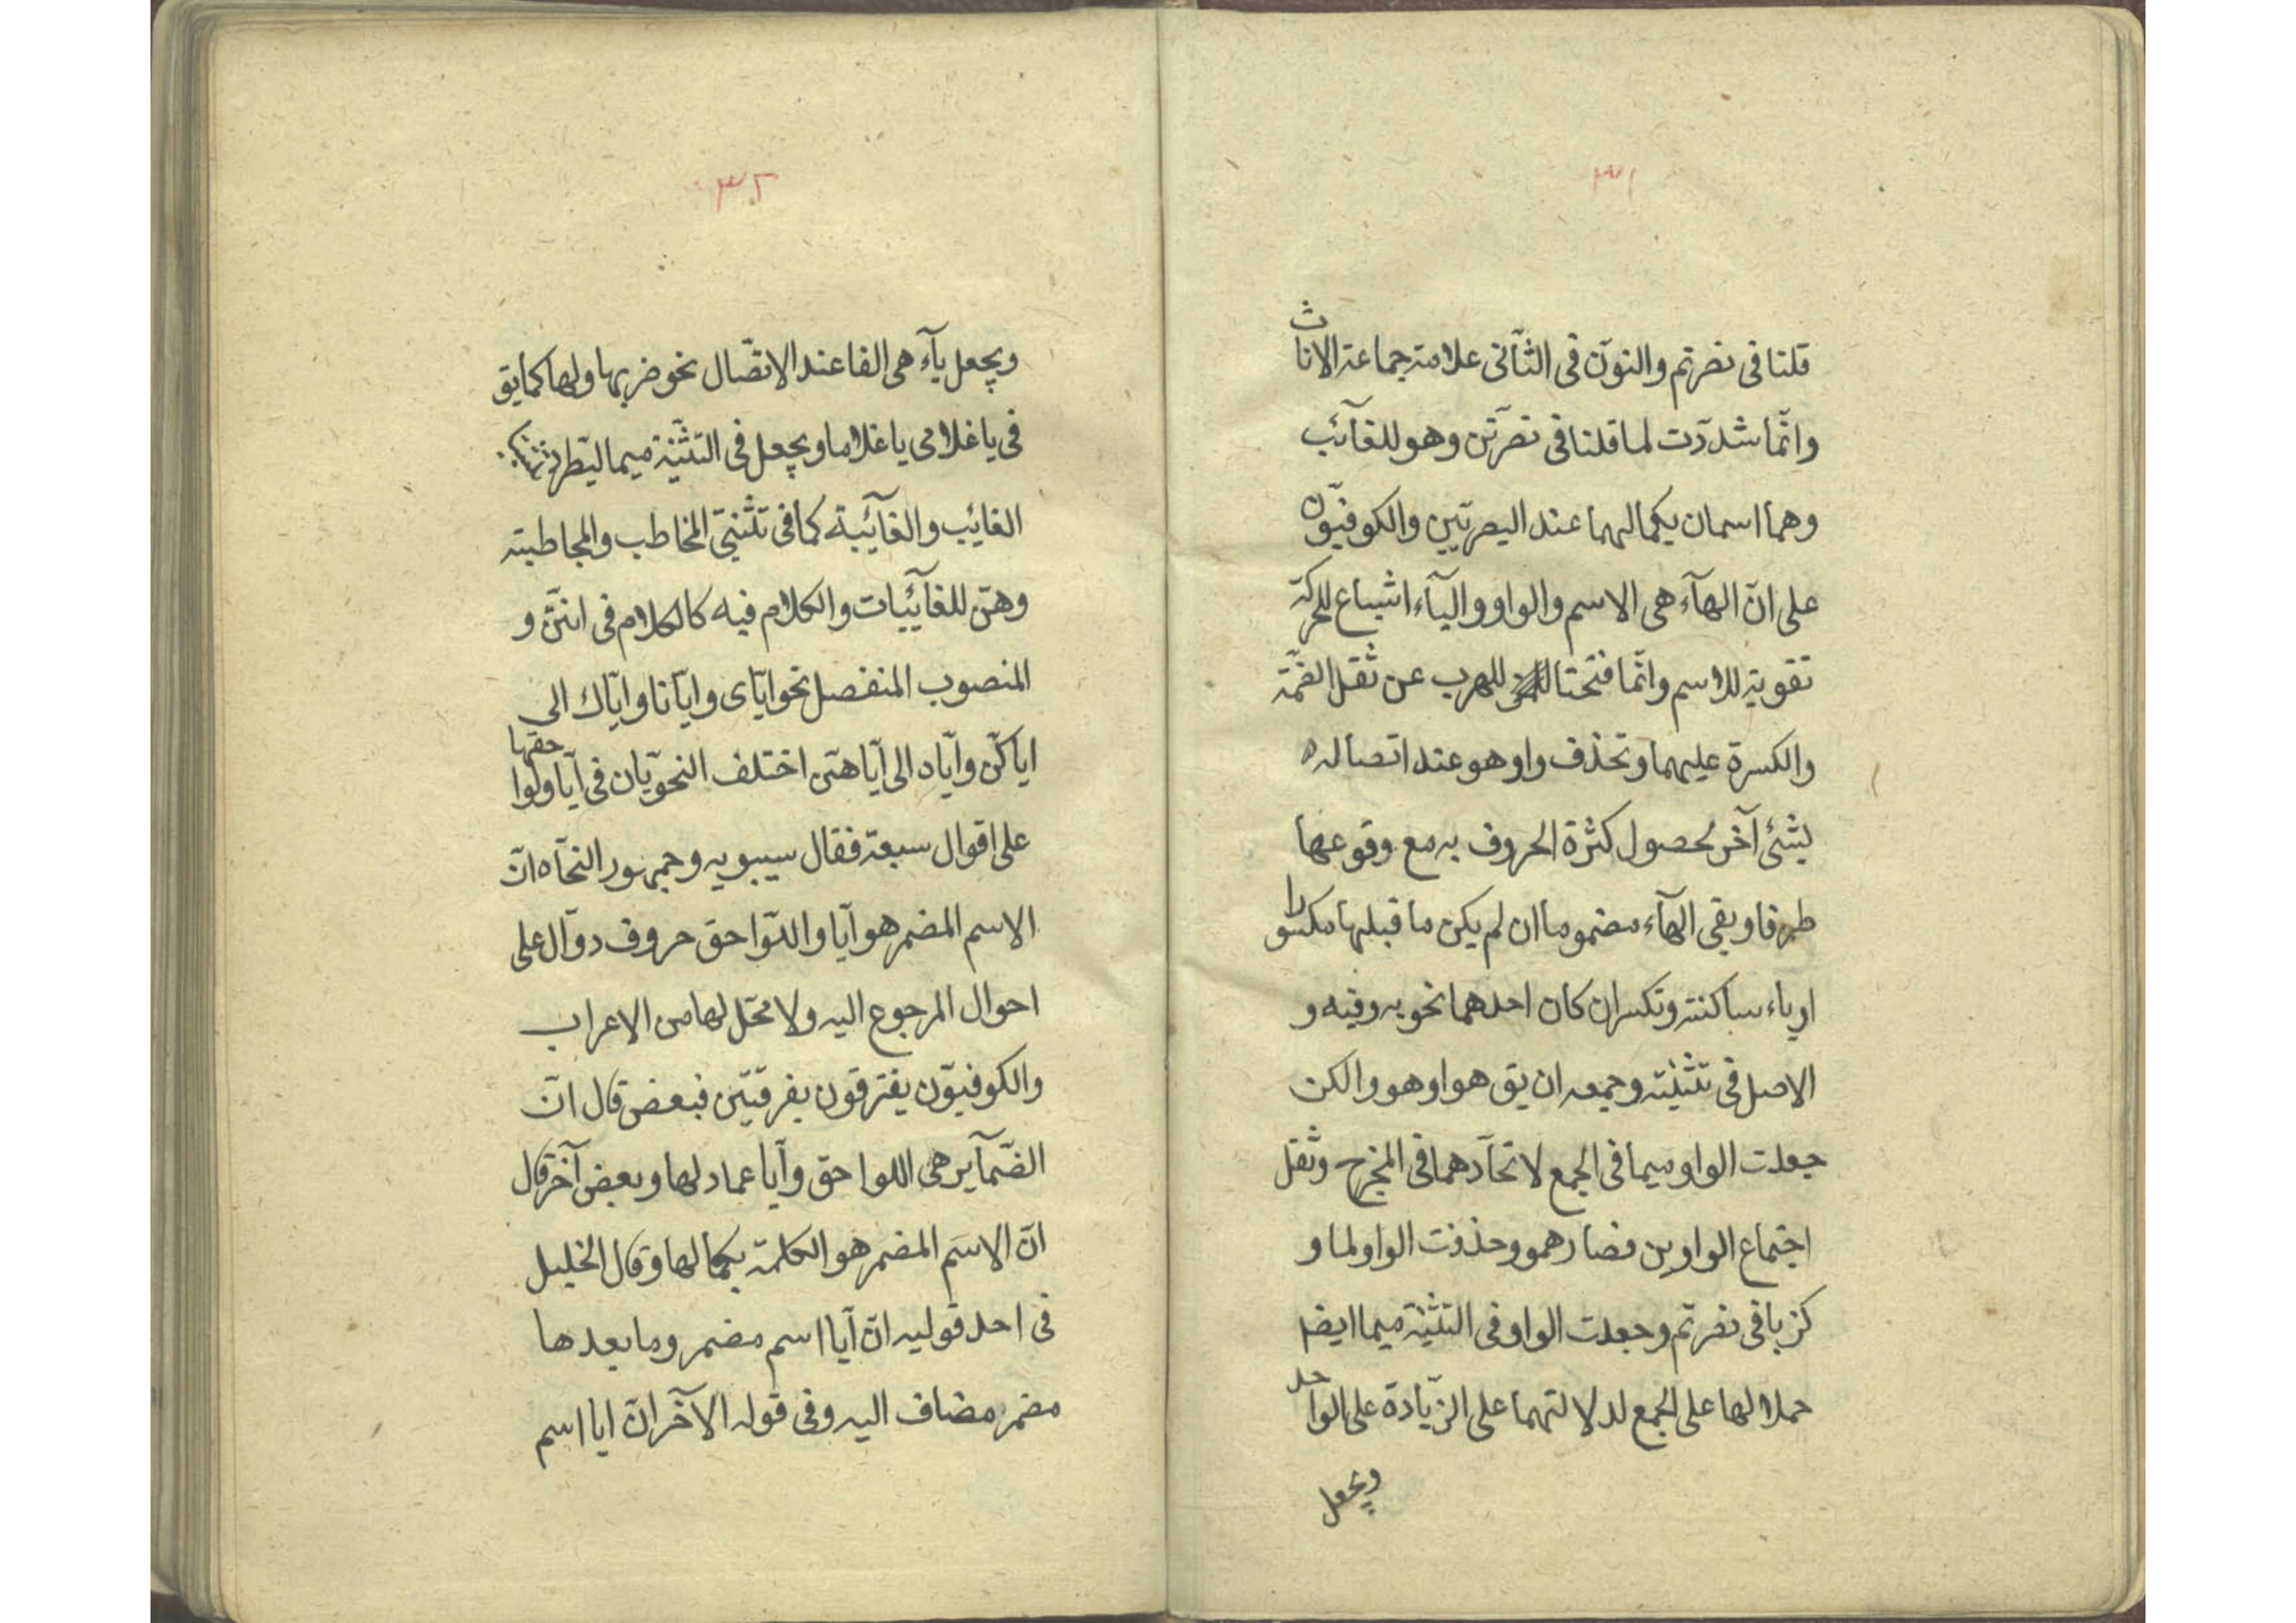 ٣١
قلنا فى نصرتم والنون فى الثآنى علامة جماعة الاناث
وانّما شدّدت لما قلنا فى نصرتن وهو للغآئب
وهما اسمان بكمالهما عند البصريّين والكوفيّون
على انّ الهآء هى الاسم والواو واليآء اشباع للحركة
تقوية للاسم وانّما فتحتا للهرب عن ثقل الضمّة
والكسرة عليهما وتحذف واو هو عند اتصاله
بشئ آخر لحصول كثرة الحروف به مع وقوعها
طرفا ويبقى الهآء مضموما ان لم يكن ما قبلها مكسورا
او ياء ساكنة وتكسر ان كان احدهما نحو به وفيه و
الاصل فى تثنيته وجمعه ان يق هوا وهوو الكن
جعلت الواو ميما فى الجمع لاتحآدهما فى المخرج وثقل
اجتماع الواوين فصار همو وحذفت الواو لما و
كز بافى نصرتم وجعلت الواو فى التثنية ميما ايضا
حملا لها على الجمع لدلالتهما على الزّيادة على الواحد
ويجعل
٣٢
ويجعل يآء هى الفا عند الاتصّال نحو ضربها ولها كما يق
فى يا غلامى يا غلاما ويجعل فى التثنية ميما ليطرد
الغائب والغآئبة كما فى تثنيتى المخاطب والمخاطبة
وهنّ للغآئبات والكلام فيه كالكلام فى انتنّ و
المنصوب المنفصل نحو ايّاى وايّانا وايّاك الى
اياكنّ وايّاه الى ايّاهنّ اختلف النحويّان فى ايّا ولواحقها
على اقوال سبعة فقال سيبويه وجمهور النحآه انّ
الاسم المضمر هو ايّا واللّواحق حروف دوآل على
احوال المرجوع اليه ولا محّل لها من الاعراب
والكوفيوّن يفترقون بفرقتين فبعض قال انّ
الضّمآير هى اللواحق وايّا عماد لها وبعض آخر قال
انّ الاسم المضمر هو الكلمة بكمالها وقال الخليل
فى احد قوليه انّ ايّا اسم مضمر وما بعدها
مضمر مضاف اليه وفى قوله الآخر انّ ايا اسم